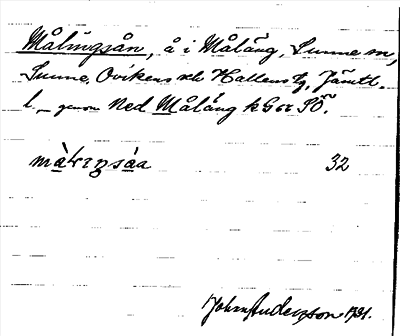 Målingsån, å i Målång, Sunne sn,
Sunne, Ovikens o Hallens tg, Jämtl.
l. – genom Ned Målång
màlıŋsáa 32
John Anderzson 1931.